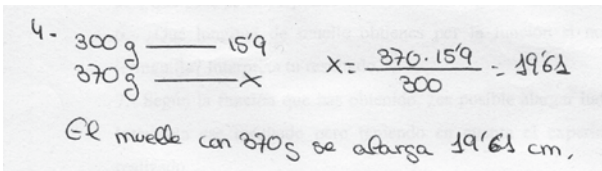 4- 300g —— 15'9
370g —— x
x = 370 · 15'9 / 300 = 19'61
El muelle con 370g se alarga 19'61 cm.